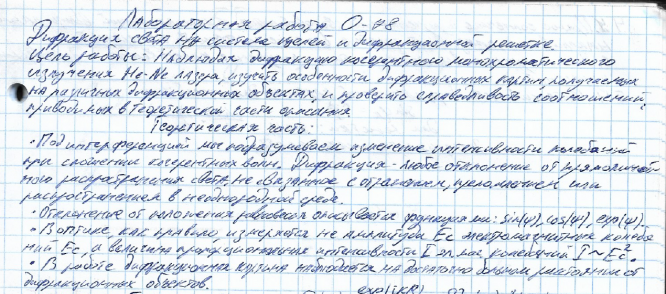 Лабораторная работа О-78
Дифракция света на системе щелей и дифракционной решетке.
Цель работы: Наблюдая дифракцию когерентного монохроматического
излучения He-Ne лазера, изучить особенности дифракционных картин, получаемых
на различных дифракционных объектах, и проверить справедливость соотношений,
приводимых в теоретической части описания
Теоретическая часть:
• Под интерференцией мы подразумеваем изменение интенсивности колебаний
при сложении когерентных волн. Дифракция - любое отклонение от прямолиней-
ного распространения света, не связанное с отражением, преломлением или
распространением в неоднородной среде.
• Отклонение от положения равновесия описывается функциями: sin(φ), cos(φ), exp(φ).
• В оптике, как правило, измеряется не амплитуда Ec электромагнитных колеба-
ний Ec, а величина пропорциональная интенсивности I этих колебаний I~Ec².
• В работе дифракционная картина наблюдается на достаточно дальнем расстоянии от
дифракционных объектов.